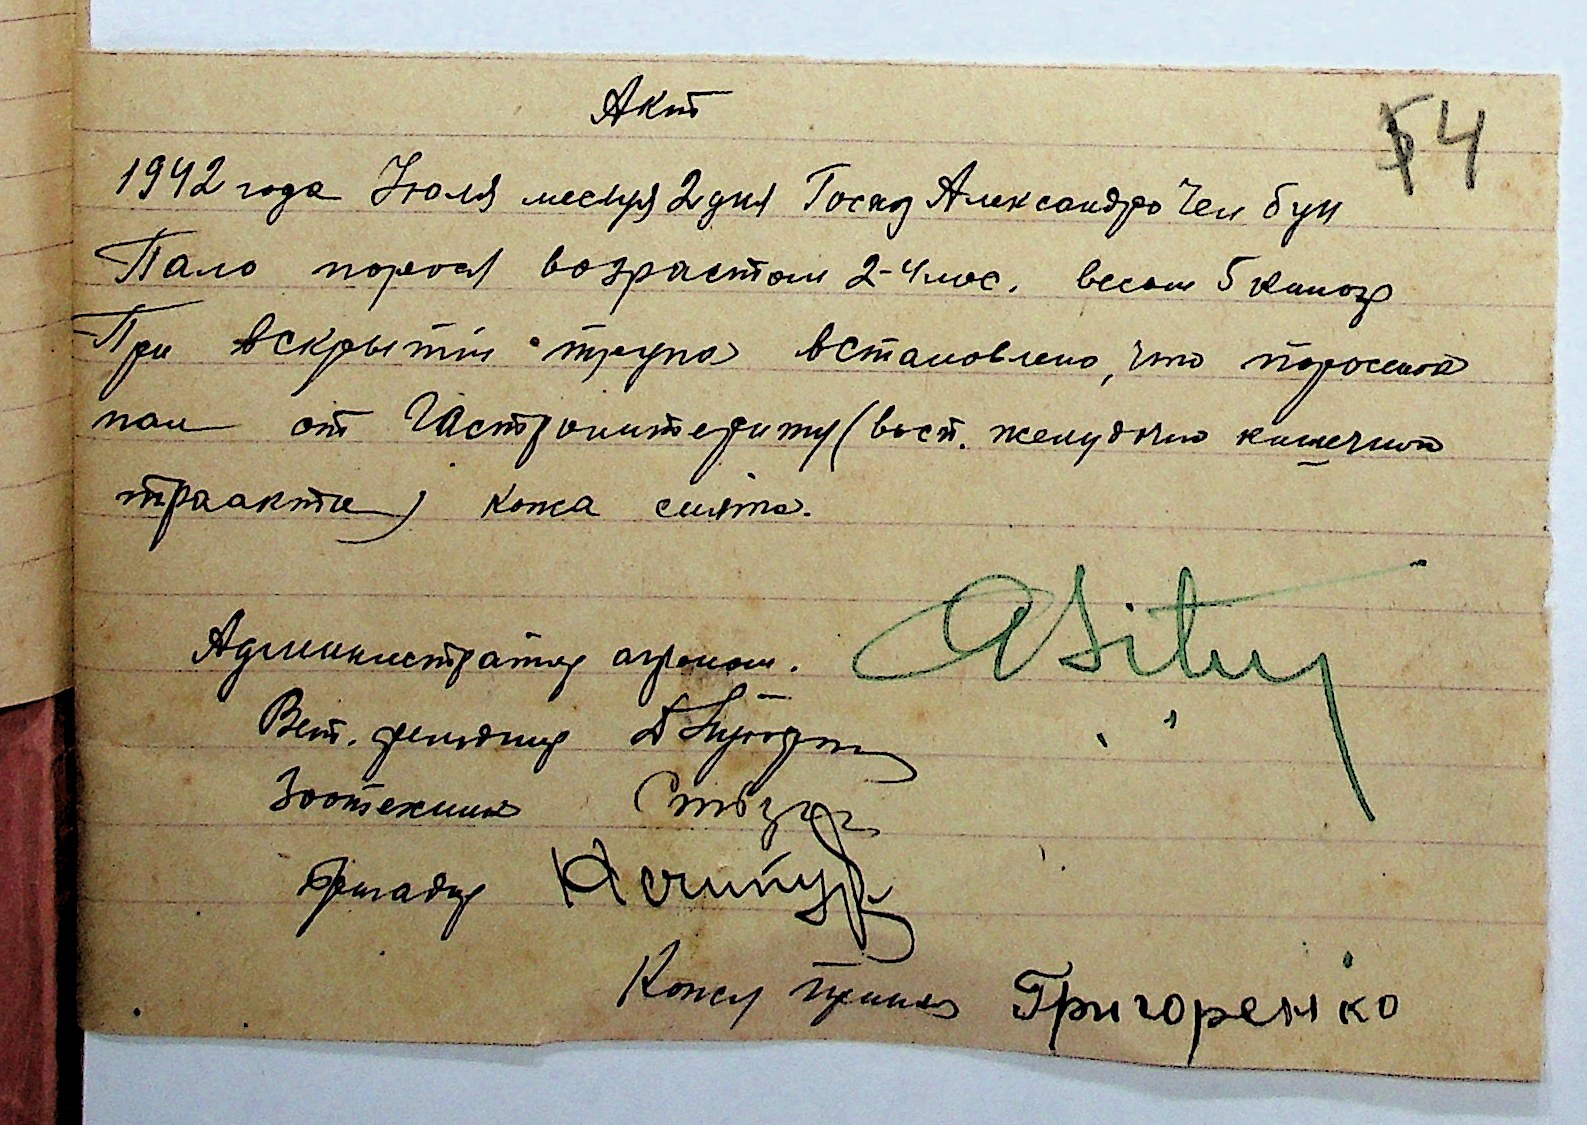 Акт
54
1942 года Июля месяця 2 дня Госхоз Александро Чен бун
Пало порося возрастом 2-4 мес. весом 5 килогр
При вскрытии трупа встановлено, что поросенок
пал от Гастроинтериту (восп. желудочно кишечной
траакта) кожа снята.
Администратор агроном.
Вет. фельдшер
Зоотехник
Бригадир
Кожу принял Григоренко